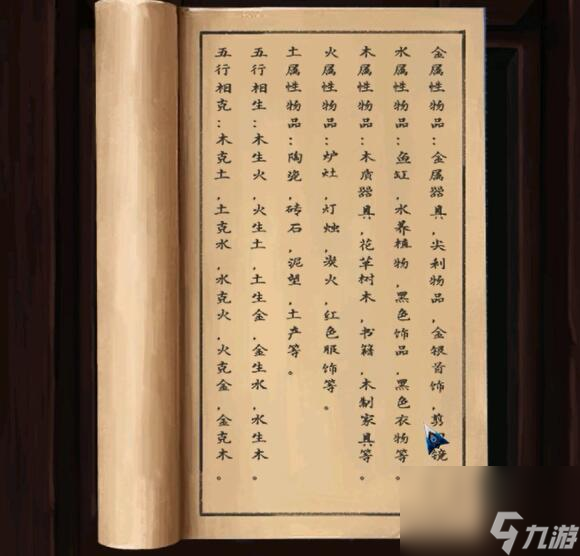 金属性物品：金属器具，尖利物品，金银首饰，剪 镜
水属性物品：鱼缸，水养植物，黑色饰品，黑色衣物等。
木属性物品：木质器具，花草树木，书籍，木制家具等。
火属性物品：炉灶，灯烛，炭火，红色服饰等。
土属性物品：陶瓷，砖石，泥塑，土产等。
五行相生：木生火，火生土，土生金，金生水，水生木。
五行相克：木克土，土克水，水克火，火克金，金克木。
九游